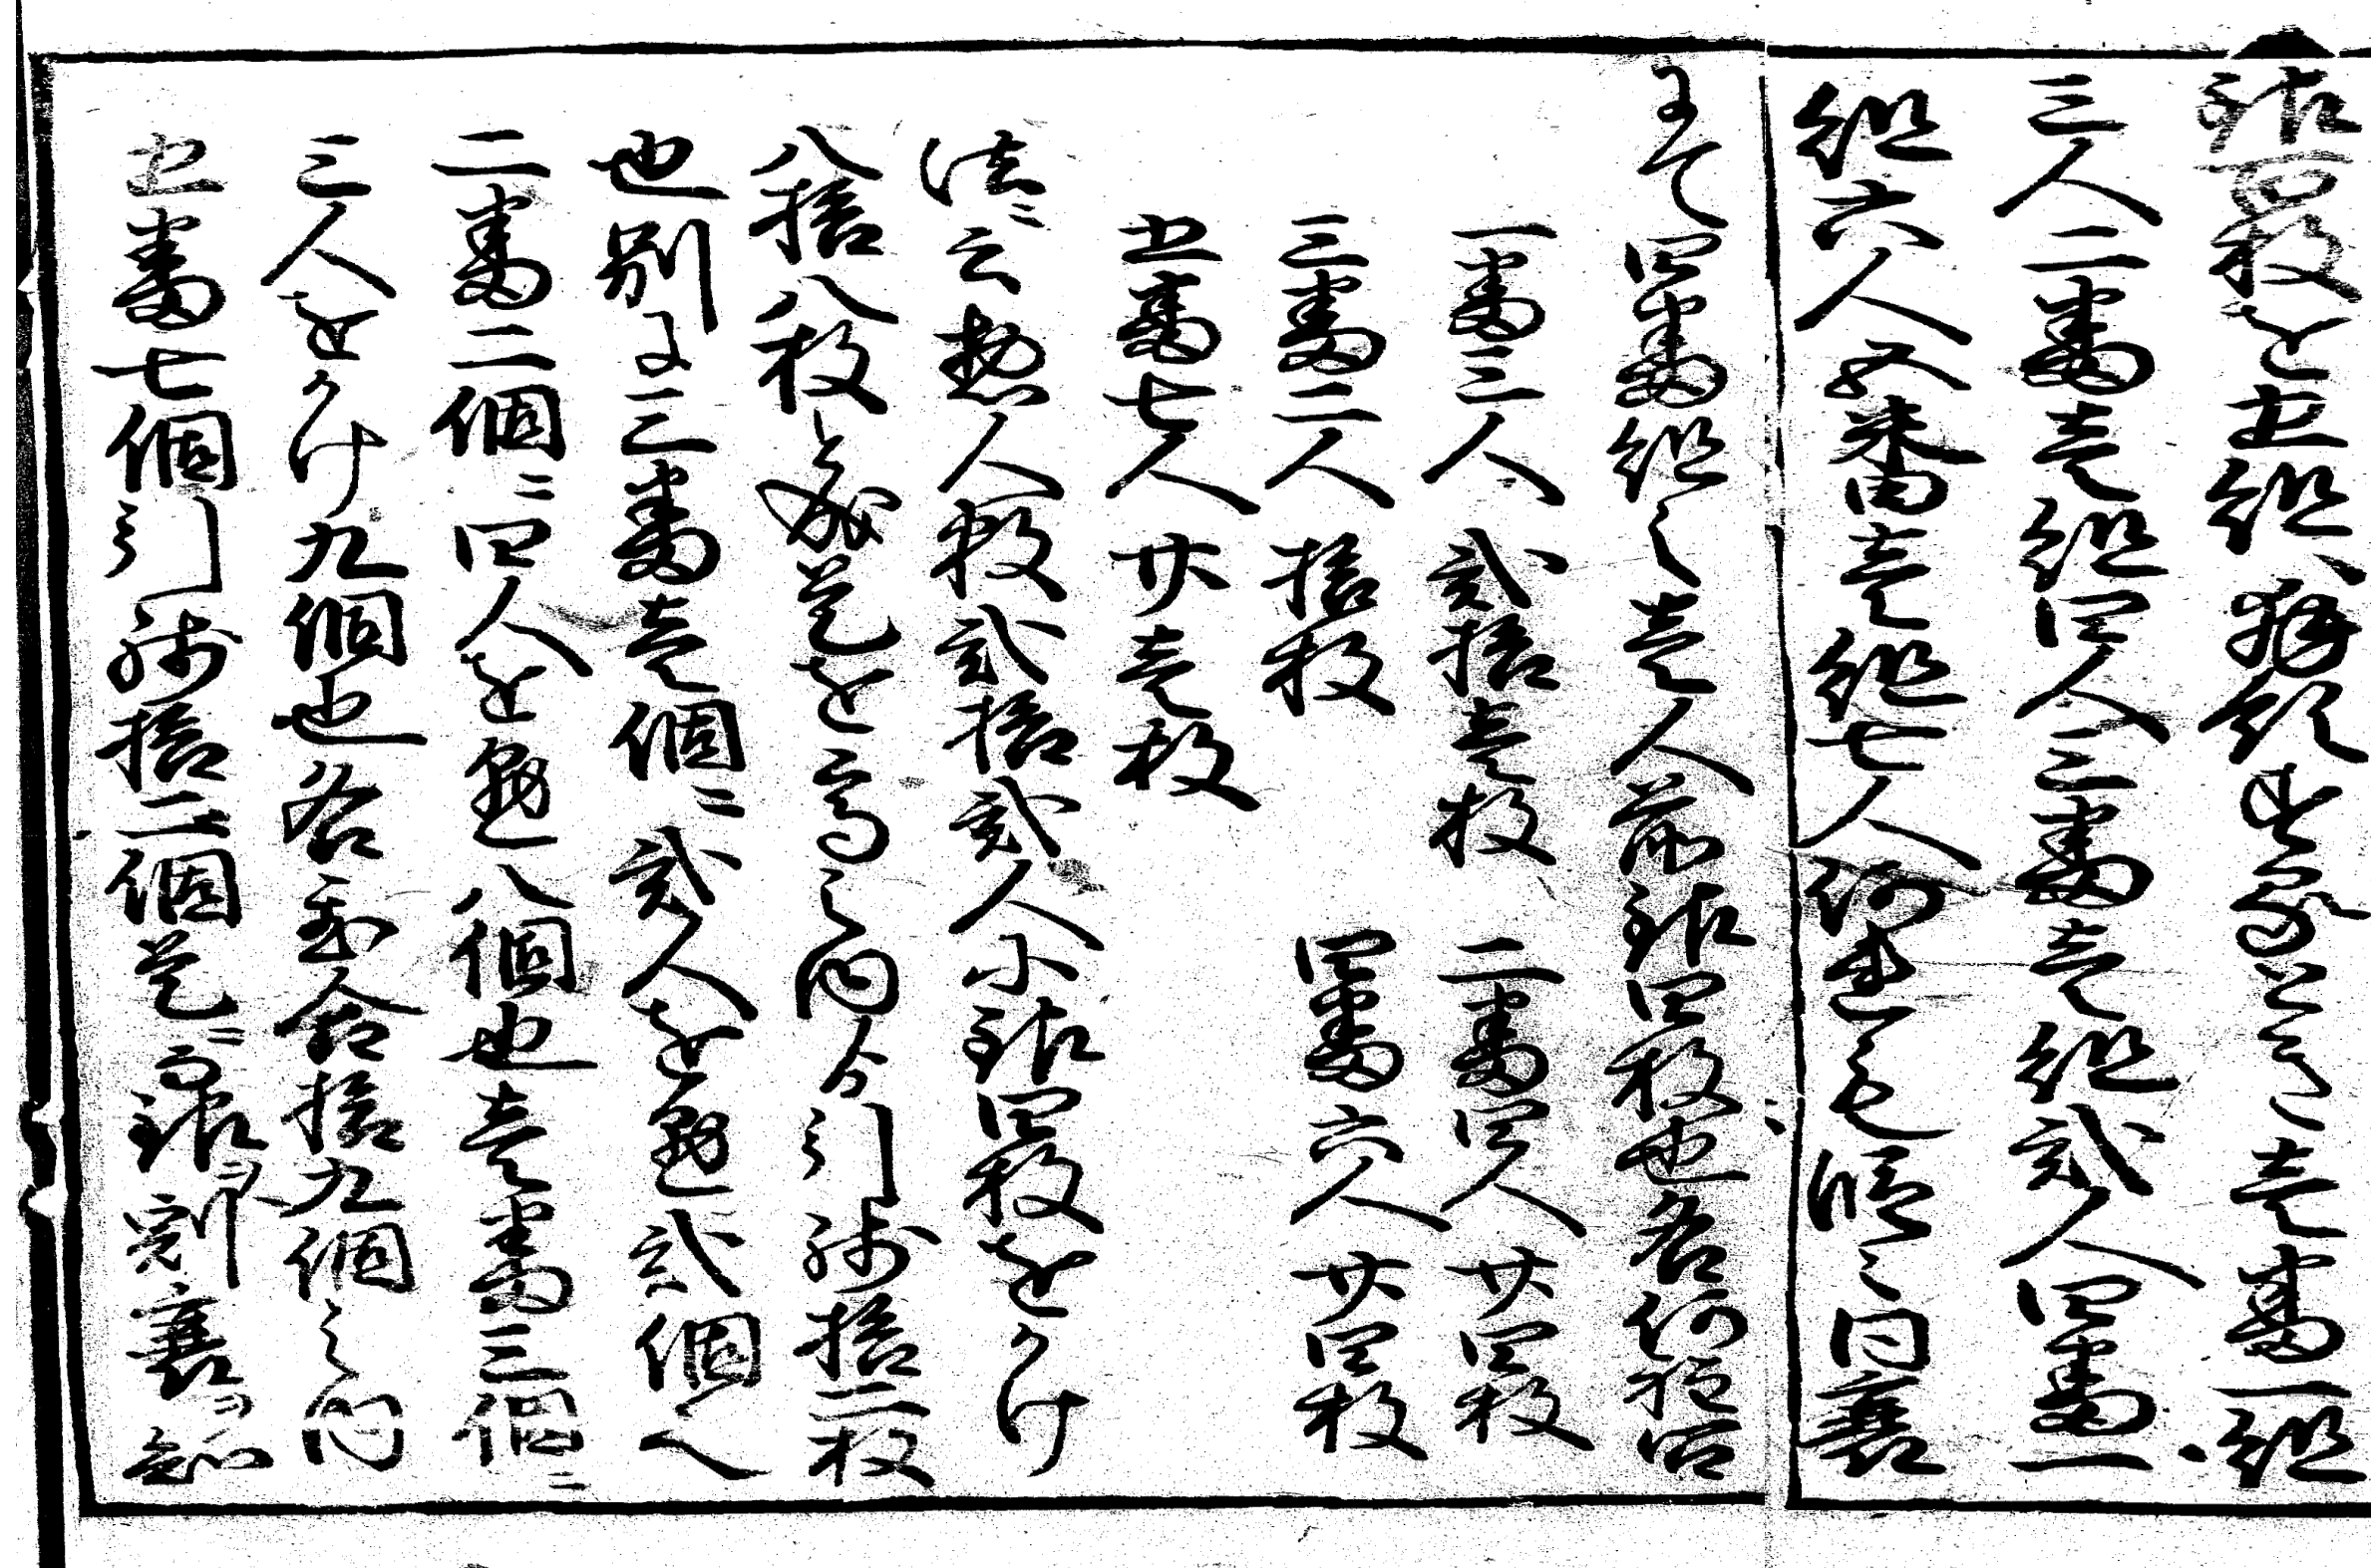 鉛百枚を五組へ務領せるとき壱番一組
三人二番壱組四人三番壱組弐人四番一
組六人五番壱組七人何連も消之内裏
にて四番組之壱人前鉛四枚也各何程宛
一番三人 弐拾壱枚 二番四人 廿四枚
三番二人 拾枚 四番六人 廿四枚
五番七人 廿壱枚
法ニ云惣人数弐拾弐人小鉛四枚をかけ
八拾八枚と成是を高之内今引残拾二枚
也別に三番壱個ニ弐人を懸弐個へ
二番二個ニ四人を懸八個也壱番三個ニ
三人をかけ九個也各和合拾九個之内
五番七個引残拾二個是ニ而銀ヲ割裏ヲ知